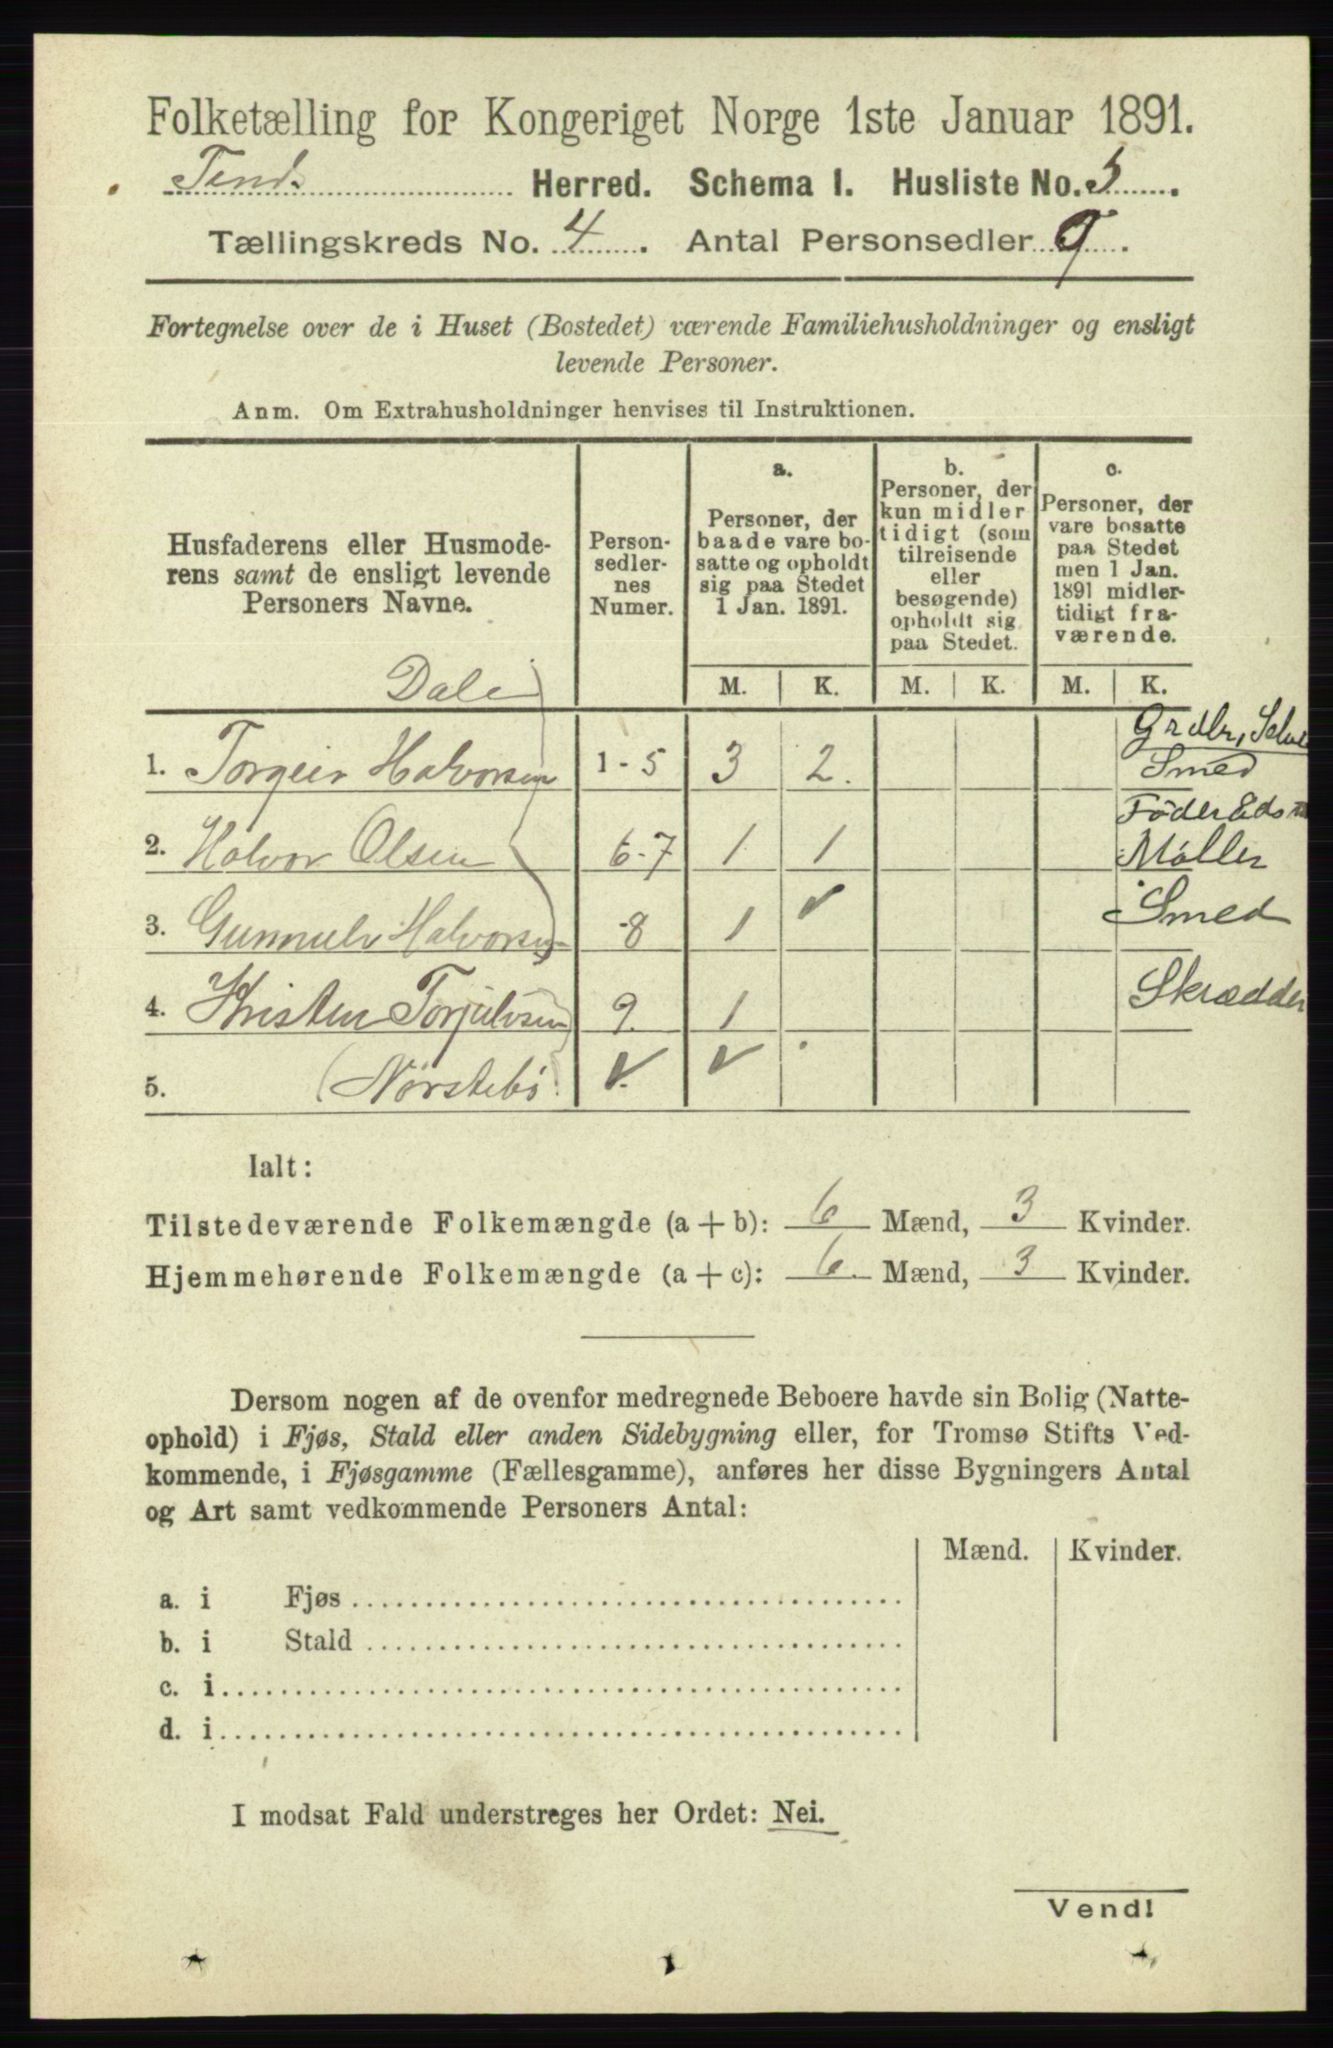 Folketælling for Kongeriget Norge 1ste Januar 1891.
Tind. Herred. Schema I. Husliste No. 3.
Tællingskreds No. 4. Antal Personsedler 9.
Fortegnelse over de i Huset (Bostedet) værende Familiehusholdninger og ensligt
levende Personer.
Anm. Om Extrahusholdninger henvises til Instruktionen.
Husfaderens eller Husmode-
rens samt de ensligt levende
Personers Navne.
Dale
Person-
sedler-
nes
Numer.
a.
Personer, der
baade vare bo-
satte og opholdt
sig paa Stedet
1 Jan. 1891.
b.
Personer, der
kun midler
tidigt (som
tilreisende
eller
besøgende)
opholdt sig
paa Stedet.
c.
Personer, der
vare bosatte
paa Stedet
men 1 Jan.
1891 midler-
tidigt fra-
værende.
M. K. M. K. M. K.
Grdbr, Selvei
1. Torgeir Halvorsen 1-5 3 2. Smed
Föderåds
2. Halvor Olsen 6-7 1 1 Møller
3. Gunnulv Halvorsen -8 1 ✓ Smed
4. Kristen Torjulvsen 9. 1 Skrædder
5. (Nørstebø) ✓. ✓
Ialt:
Tilstedeværende Folkemængde (a + b): 6 Mænd, 3 Kvinder.
Hjemmehørende Folkemængde (a + c): 6. Mænd, 3 Kvinder.
Dersom nogen af de ovenfor medregnede Beboere havde sin Bolig (Natte-
ophold) i Fjøs, Stald eller anden Sidebygning eller, for Tromsø Stifts Ved-
kommende, i Fjøsgamme (Fællesgamme), anføres her disse Bygningers Antal
og Art samt vedkommende Personers Antal:
Mænd. Kvinder.
a. i Fjøs
b. i Stald
c. i
d. i
I modsat Fald understreges her Ordet: Nei.
Vend!